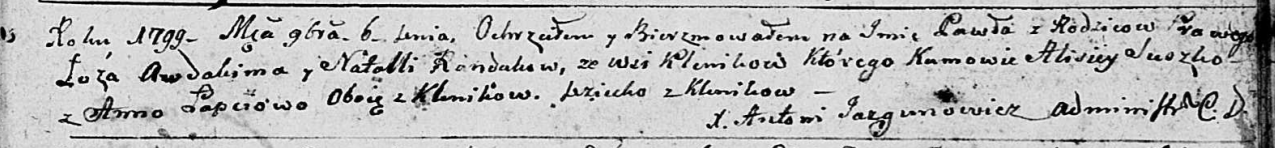 Roku 1799 Mca 9bra 6 dnia, Ochrzciłem y Bierzmowałem na Imie Pawła z Rodzicow Prawego
Łoża Awdakima y Natalli Randakow, ze wsi Klenikow którego Kumowie Alisiey Suszko
z Anno Łapciowo Oboie z Klenikow. dziecko z Klenikow —
X. Antoni Jazgunowicz administr C. D.